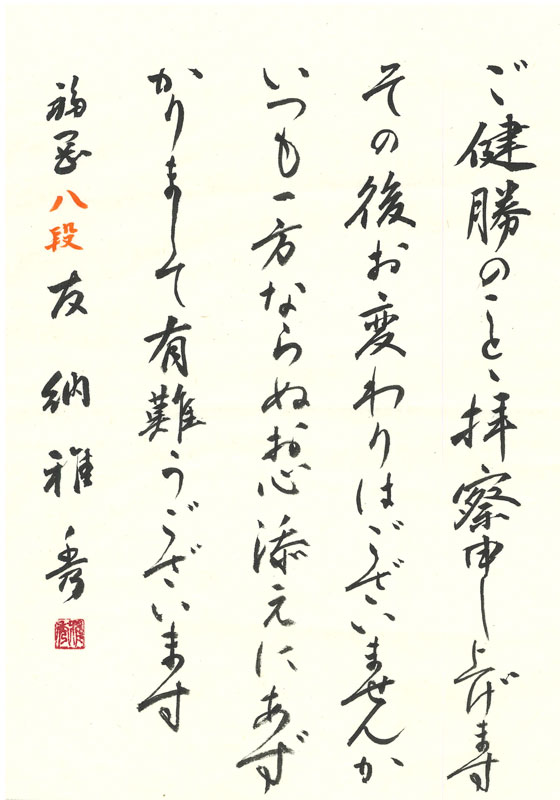 ご健勝のことゝ拝察申し上げます
その後お変わりはございませんか
いつも一方ならぬお心添えにあず
かりまして有難うございます
福岡 八段 友納雅秀